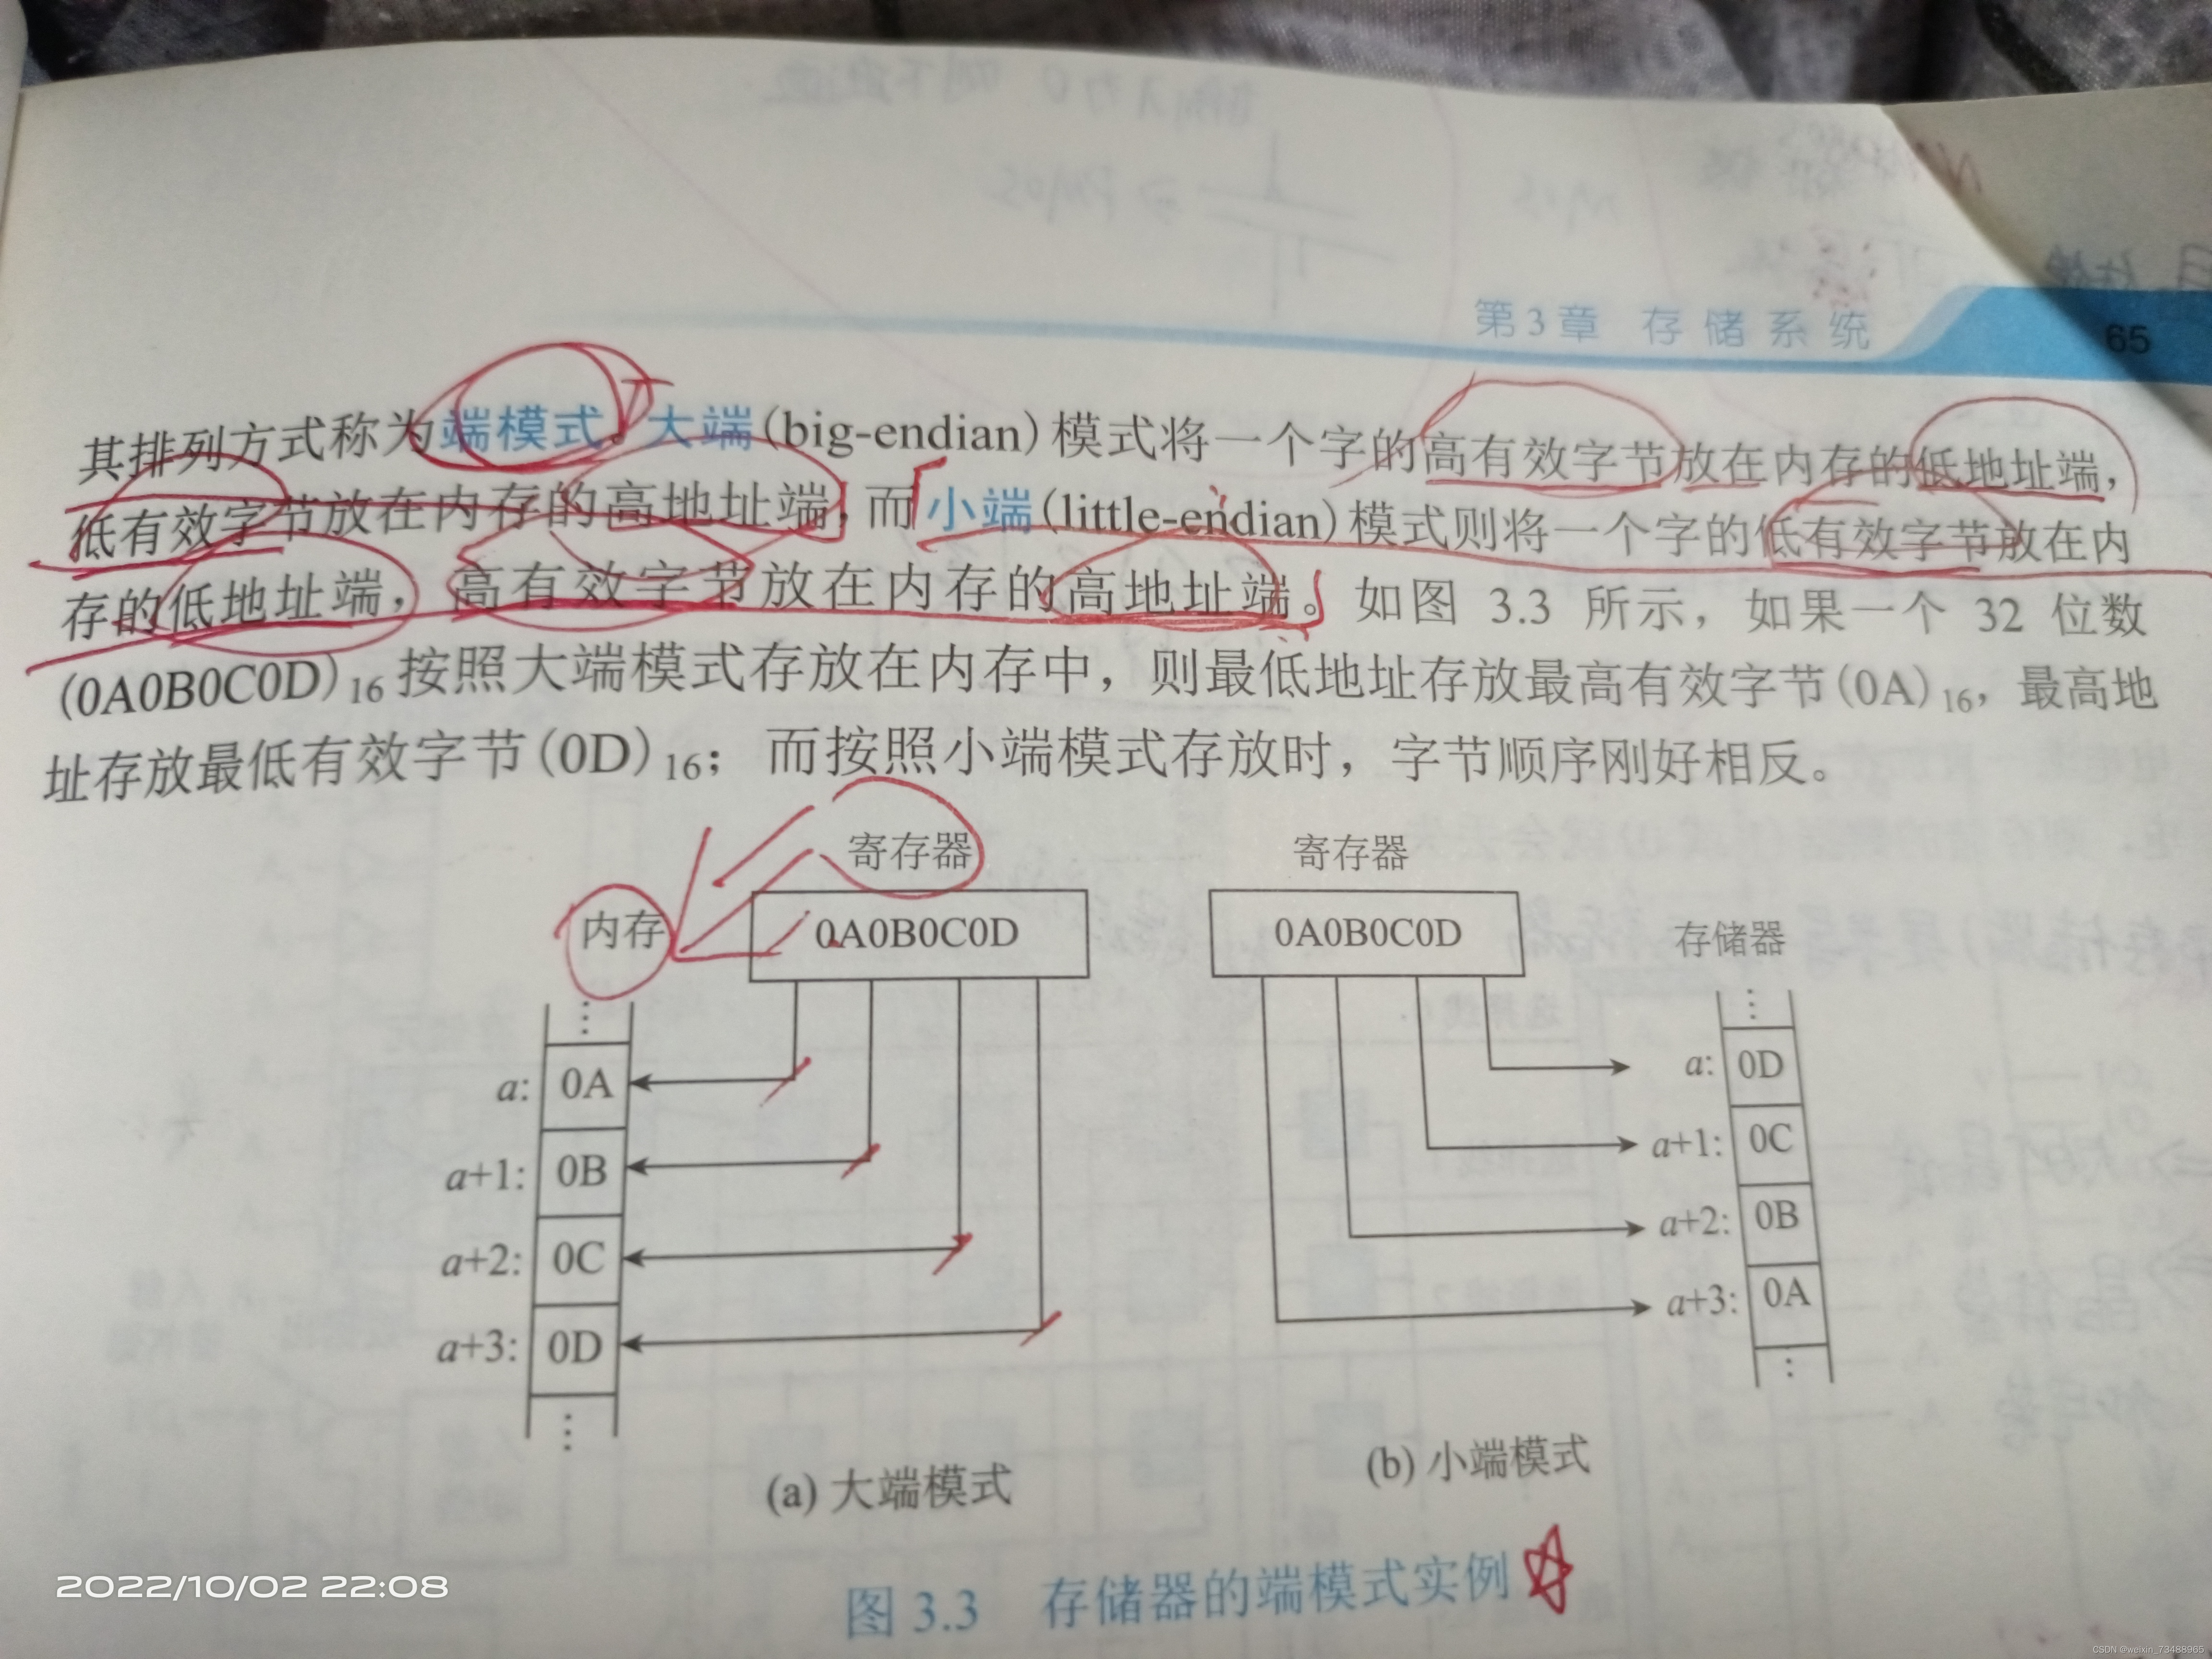 第3章 存储系统
65
其排列方式称为端模式。大端(big-endian)模式将一个字的高有效字节放在内存的低地址端，
低有效字节放在内存的高地址端，而小端(little-endian)模式则将一个字的低有效字节放在内
存的低地址端，高有效字节放在内存的高地址端。如图 3.3 所示，如果一个 32 位数
(0A0B0C0D)₁₆按照大端模式存放在内存中，则最低地址存放最高有效字节(0A)₁₆，最高地
址存放最低有效字节(0D)₁₆；而按照小端模式存放时，字节顺序刚好相反。
寄存器
内存
0A0B0C0D
⋮
a: 0A
a+1: 0B
a+2: 0C
a+3: 0D
⋮
(a) 大端模式
寄存器
0A0B0C0D
存储器
⋮
a: 0D
a+1: 0C
a+2: 0B
a+3: 0A
⋮
(b) 小端模式
图 3.3 存储器的端模式实例
2022/10/02 22:08
CSDN @weixin_73488965